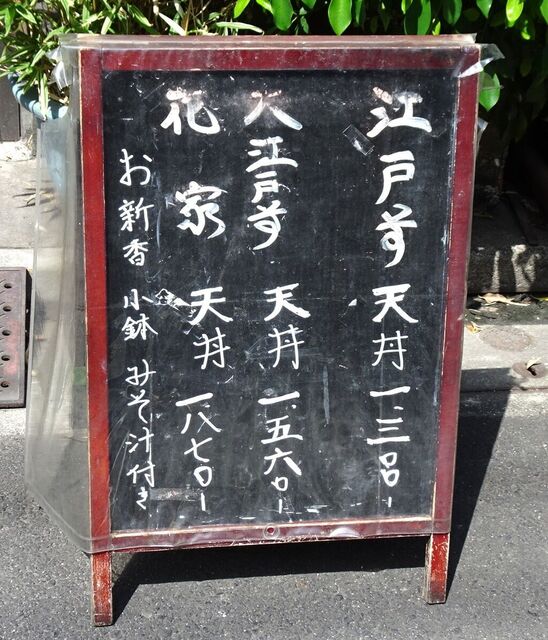 江戸前天丼 一、三〇〇-
大江戸前天丼 一、五六〇-
花家天丼 一八七〇-
お新香 小鉢 みそ汁付き